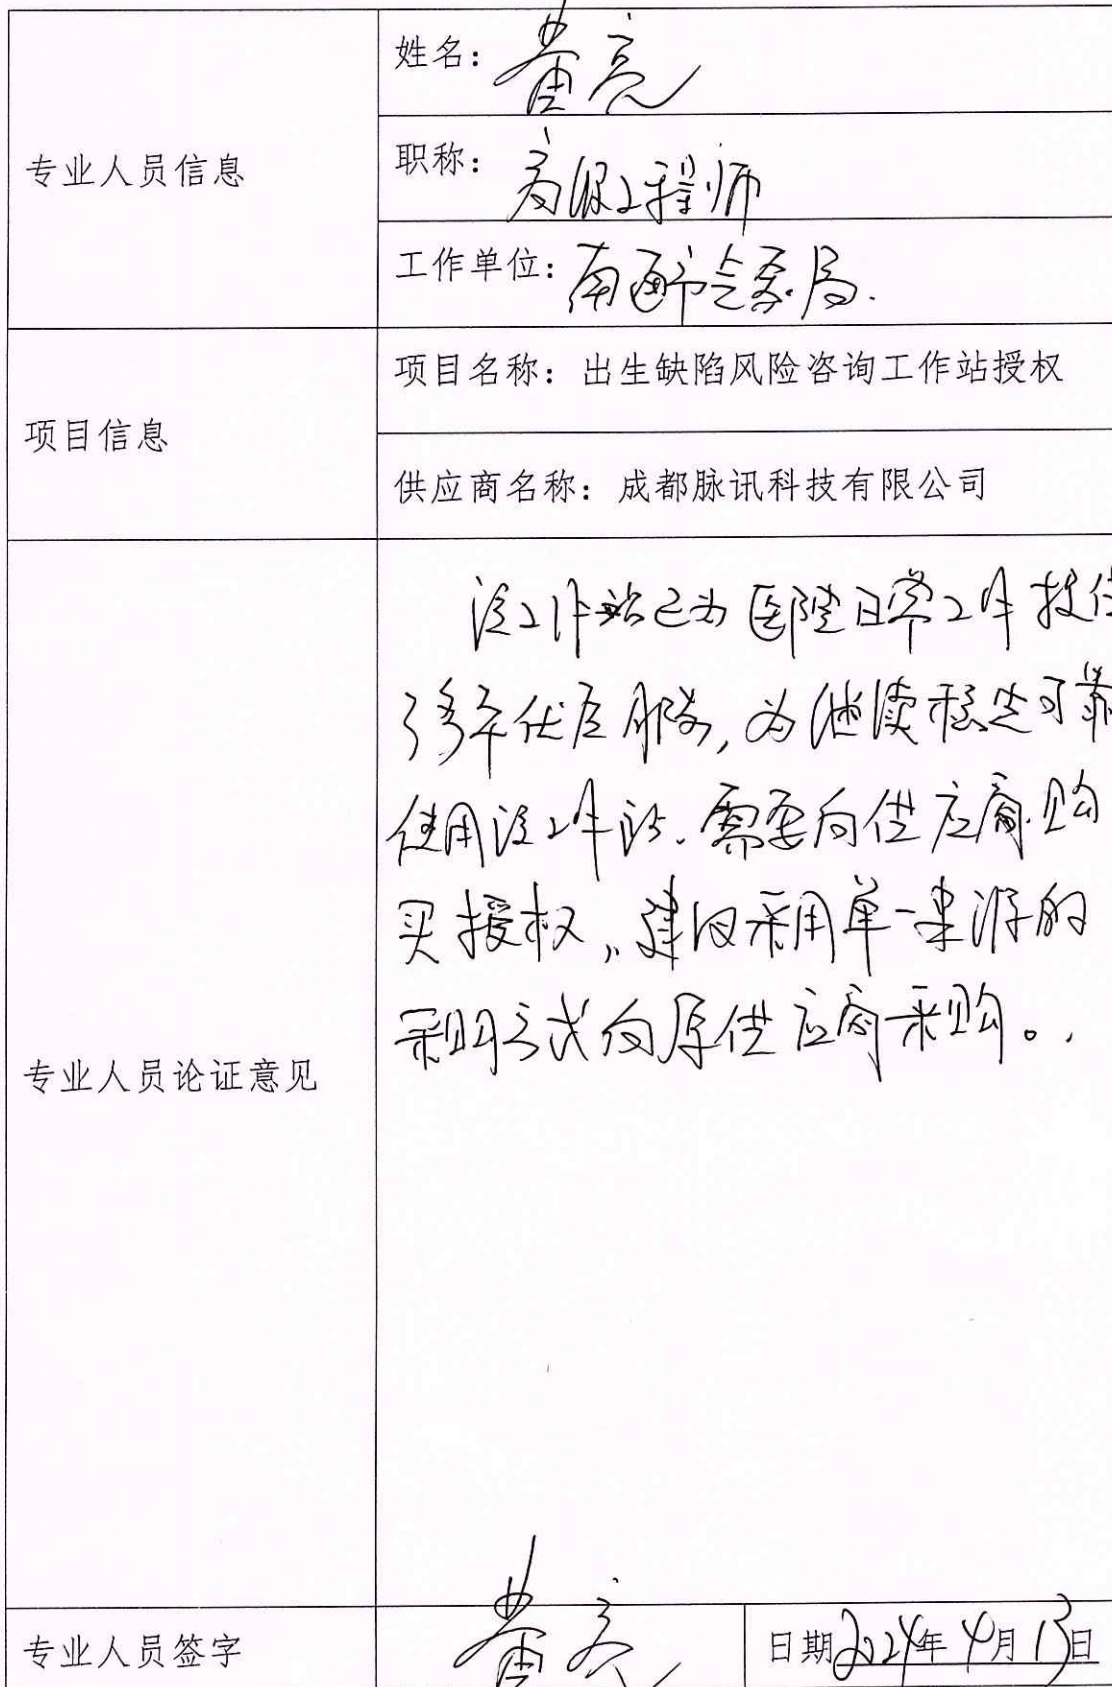 专业人员信息
姓名：黄亮
职称：高级工程师
工作单位：南通市气象局.
项目信息
项目名称：出生缺陷风险咨询工作站授权
供应商名称：成都脉讯科技有限公司
专业人员论证意见
该工作站已为医院日常工作提供
了多年优质服务，为继续稳定可靠
使用该工作站.需要向供应商购
买授权，建议采用单一来源的
采购方式向原供应商采购。
专业人员签字
黄亮
日期2024年4月13日